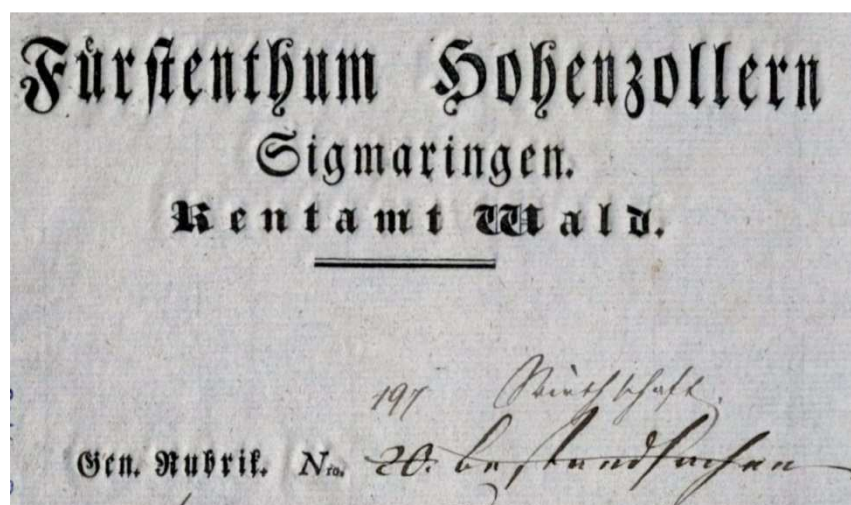 Fürstenthum Hohenzollern
Sigmaringen.
Rentamt Wald.
197 Wirthschaft.
Gen. Rubrik. Nro. 20. Bestandsachen